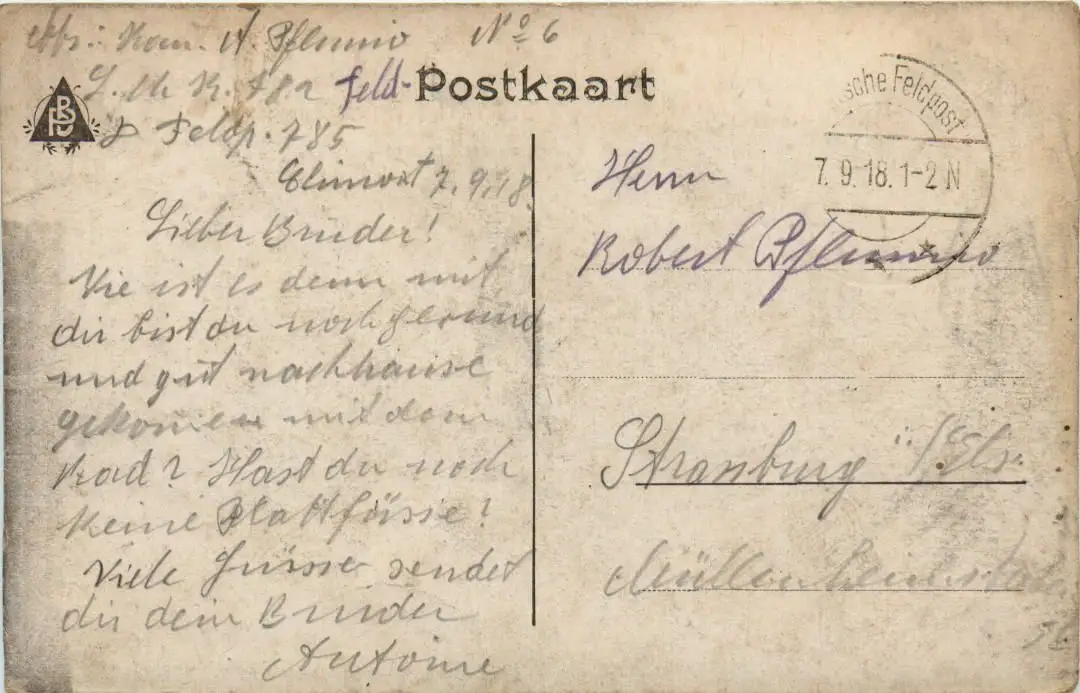 Abs: Kan. A. Pflumio No 6
L. M. K. 782
D Feldp. 785
Feld-Postkaart
PBS
sche Feldpost
7. 9. 18. 1-2 N
7.9.18.
Lieber Bruder!
Wie ist es denn mit
dir bist du noch gesund
und gut nachhause
gekomen mit dem
Rad? Hast du noch
keine Plattfüsse!
Viele Grüsse sendet
dir dein Bruder
Antoine
Herrn
Robert Pflumio
Strassburg i/Els.
Müllenheimstr